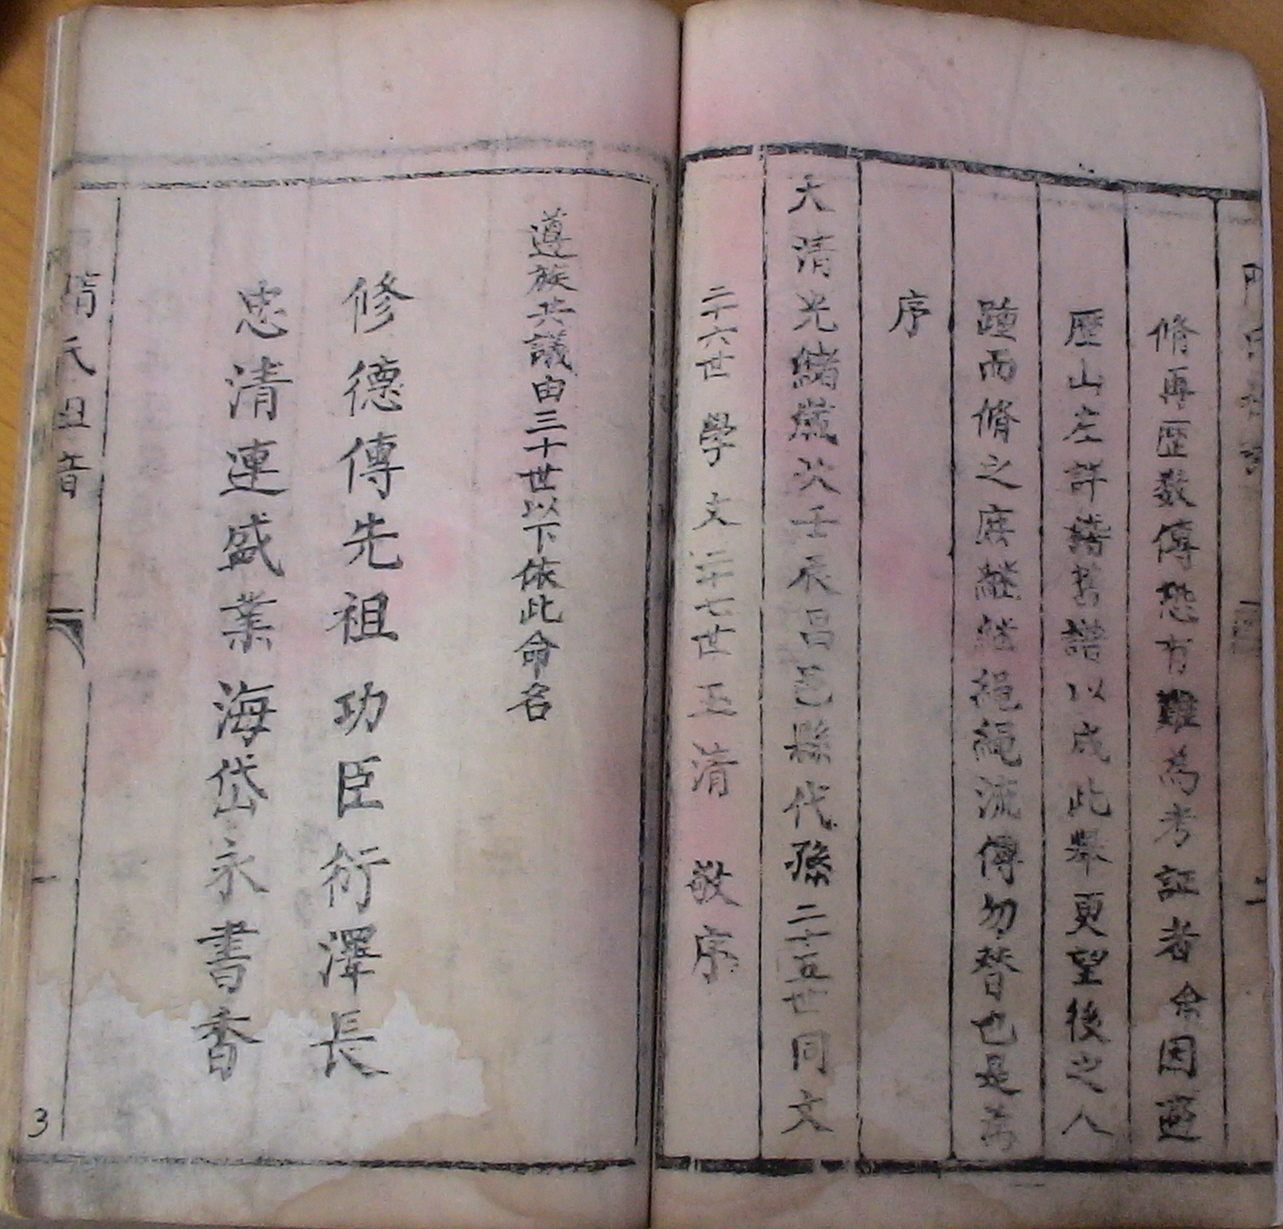 脩再歷數傳恐有難為考証者余因遊
歷山左詳譜舊譜以成此舉更望後之人
踵而脩之庶繼繼繩繩流傳勿替也是為
序
大清光緒歲次壬辰昌邑縣代孫二十五世同文
二十六世學文二十七世玉清敬序
遵族共議由三十世以下依此命名
修德傳先祖功臣衍澤長
忠清連盛業海岱永書香
3